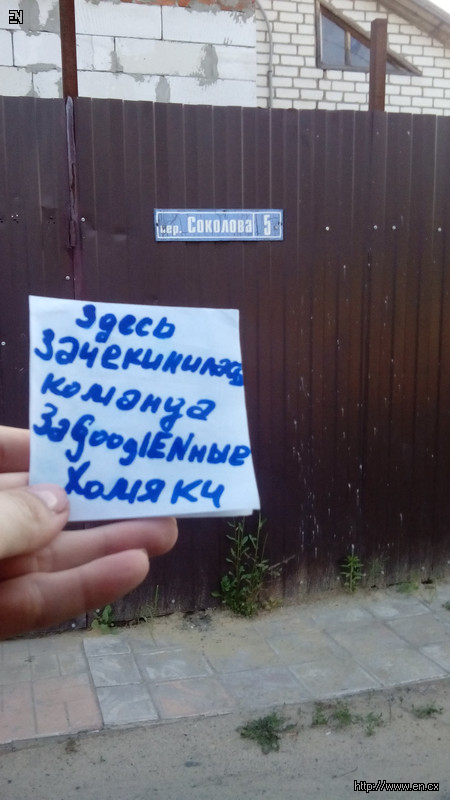 EN
пер. Соколова 5
Здесь
Зачекинилась
команда
ЗаgooglENные
Хомяки
http://www.en.cx